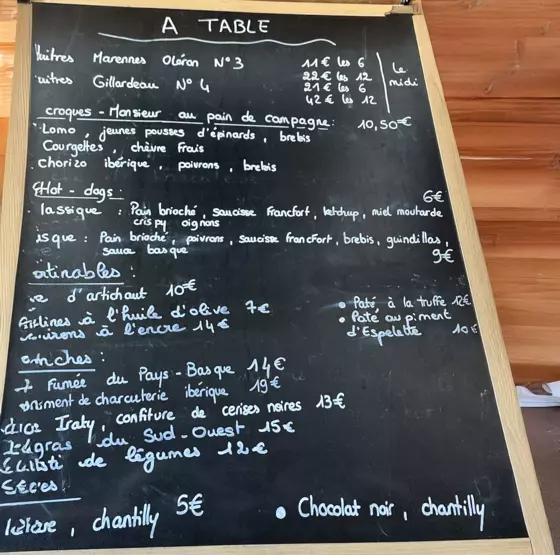 A TABLE
Huîtres Marennes Oléron N°3 11€ les 6
22€ les 12
uitres Gillardeau N°4 21€ les 6
42€ les 12
Le midi
croques-Monsieur au pain de campagne: 10,50€
Lomo, jeunes pousses d'épinards, brebis
Courgettes, chèvre frais
Chorizo ibérique, poivrons, brebis
Hot-dogs:
6€
lassique : Pain brioché, saucisse Francfort, ketchup, miel moutarde
crispy oignons
asque : Pain brioché, poivrons, saucisse francfort, brebis, guindillas,
sauce basque 9€
atinables:
d'artichaut 10€
à l'huile d'olive 7€
à l'encre 14€
• Paté à la truffe 12€
• Paté au piment
d'Espelette 10€
anches:
Fumée du Pays-Basque 14€
de charcuterie ibérique 19€
Iraty, confiture de cerises noires 13€
du Sud-Ouest 15€
de légumes 12€
, chantilly 5€
• Chocolat noir, chantilly